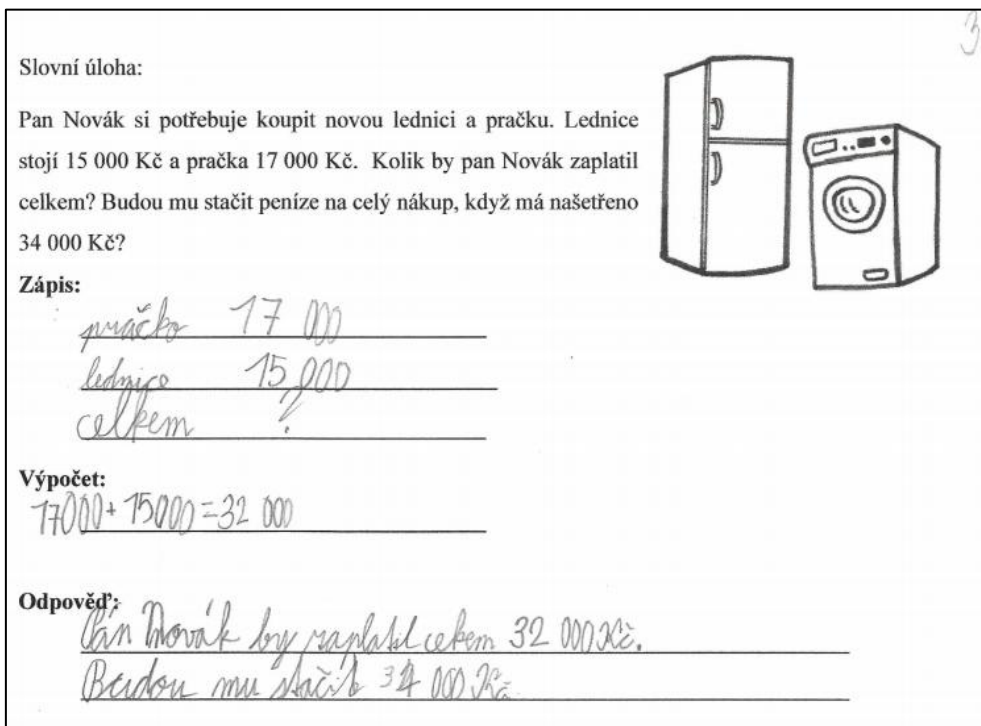 3
Slovní úloha:
Pan Novák si potřebuje koupit novou lednici a pračku. Lednice
stojí 15 000 Kč a pračka 17 000 Kč. Kolik by pan Novák zaplatil
celkem? Budou mu stačit peníze na celý nákup, když má našetřeno
34 000 Kč?
Zápis:
pračka 17 000
lednice 15 000
celkem ?
Výpočet:
17000 + 15000 = 32 000
Odpověď:
Pán Novák by zaplatil cekem 32 000 Kč.
Budou mu stačit 34 000 Kč